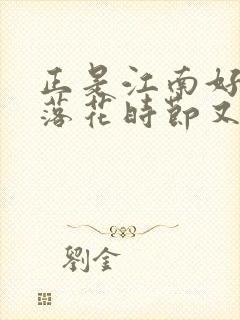 正是江南好
落花時節又
劉金